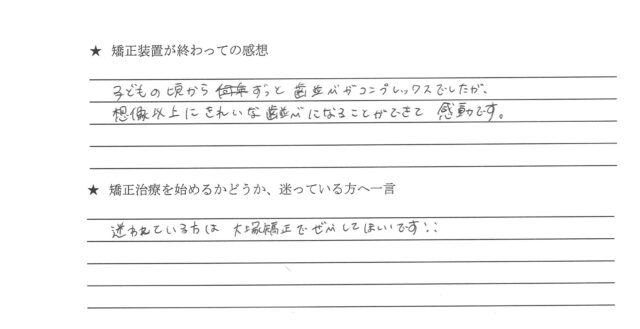 ★ 矯正装置が終わっての感想
子どもの頃から何年ずっと歯並びがコンプレックスでしたが、
想像以上にきれいな歯並びになることができて感動です。
★ 矯正治療を始めるかどうか、迷っている方へ一言
迷われている方は大塚矯正でぜひしてほしいです!!